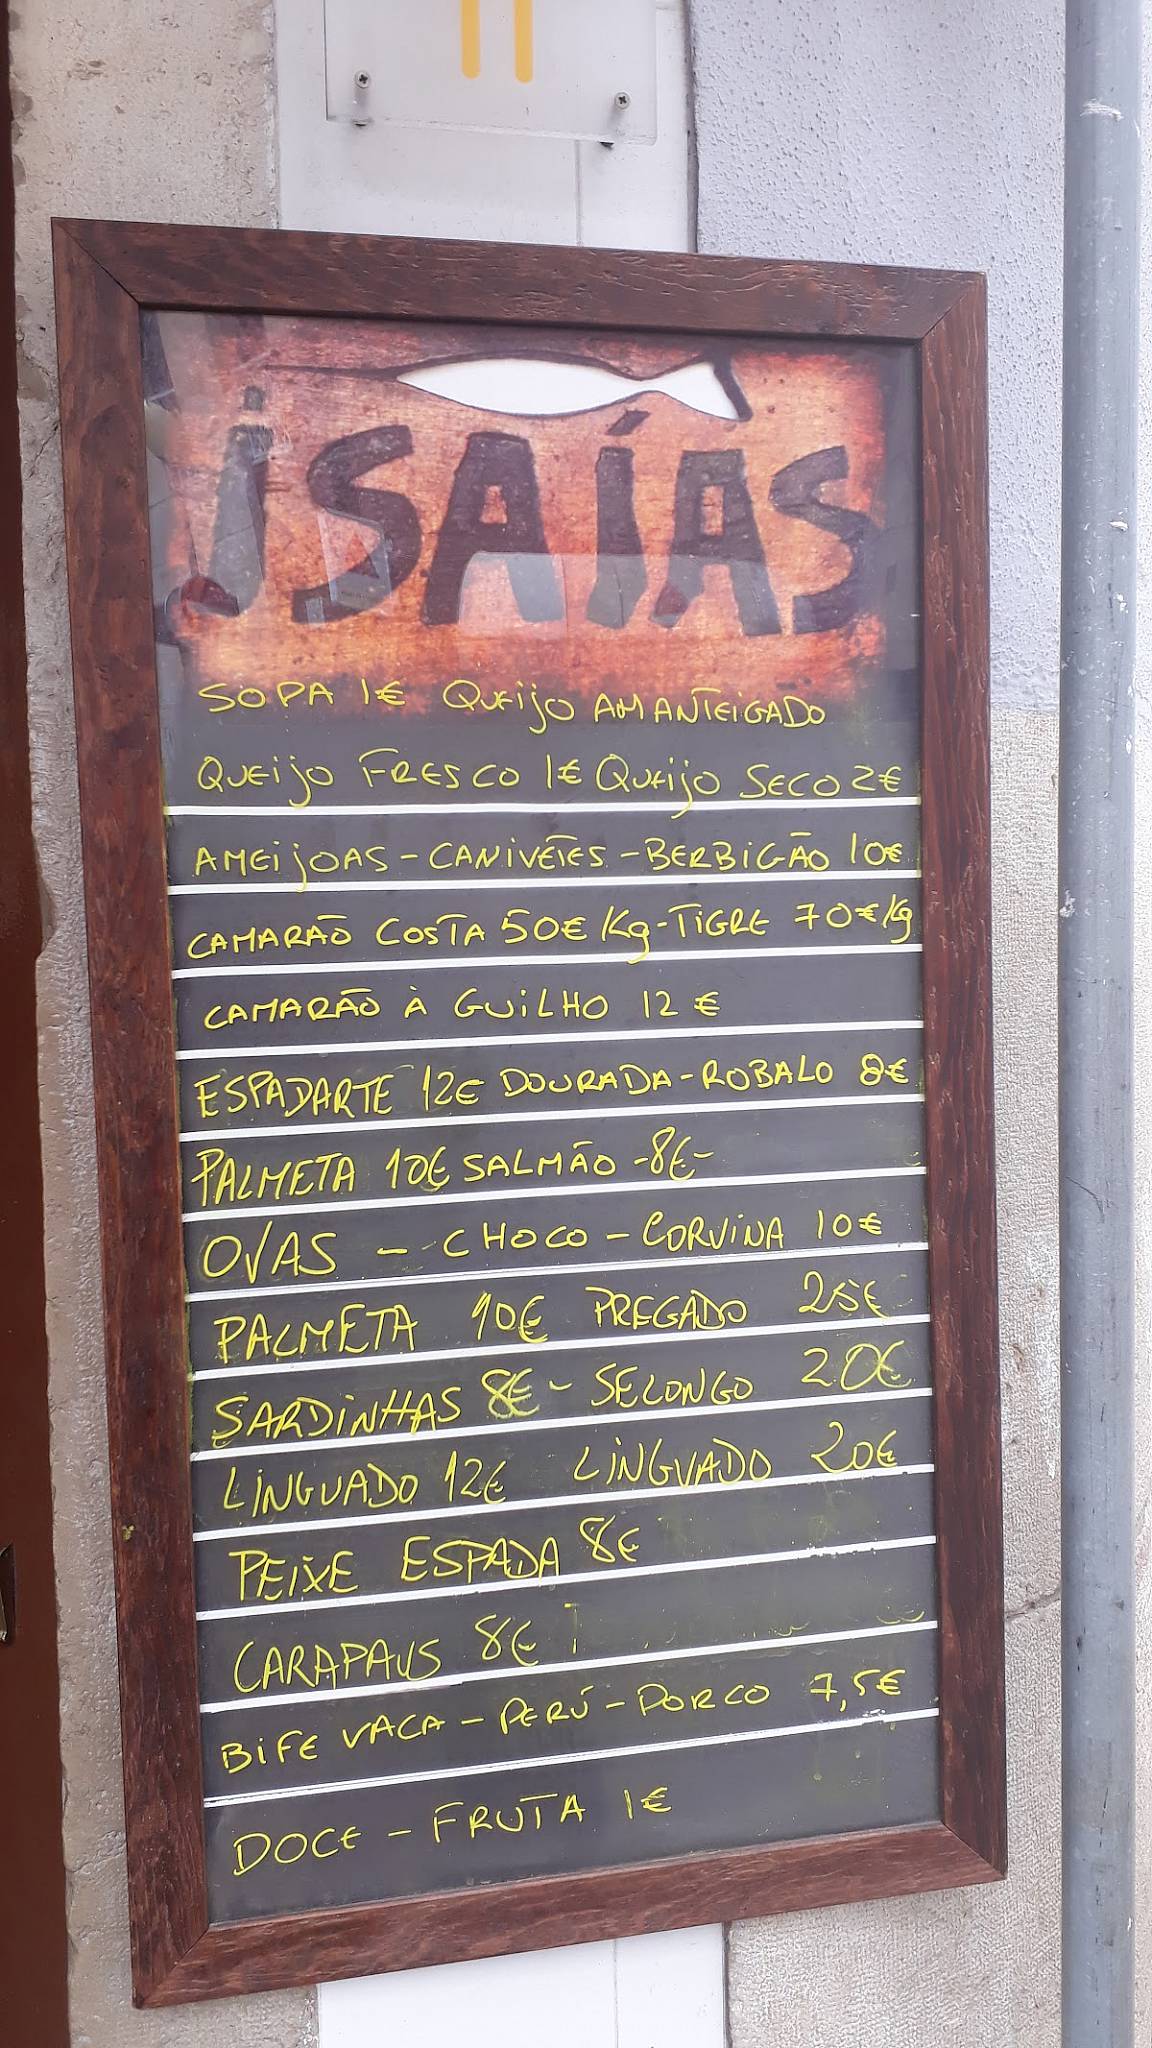 ISAÍAS
SOPA 1€ QUEIJO AMANTEIGADO
QUEIJO FRESCO 1€ QUEIJO SECO 2€
AMEIJOAS - CANIVETES - BERBIGÃO 10€
CAMARÃO COSTA 50€/Kg - TIGRE 70€/Kg
CAMARÃO À GUILHO 12€
ESPADARTE 12€ DOURADA - ROBALO 8€
PALMETA 10€ SALMÃO - 8€ -
OVAS - CHOCO - CORVINA 10€
PALMETA 10€ PREGADO 25€
SARDINHAS 8€ - SELONGO 20€
LINGUADO 12€ LINGUADO 20€
PEIXE ESPADA 8€
CARAPAUS 8€
BIFE VACA - PERÚ - PORCO 7,5€
DOCE - FRUTA 1€